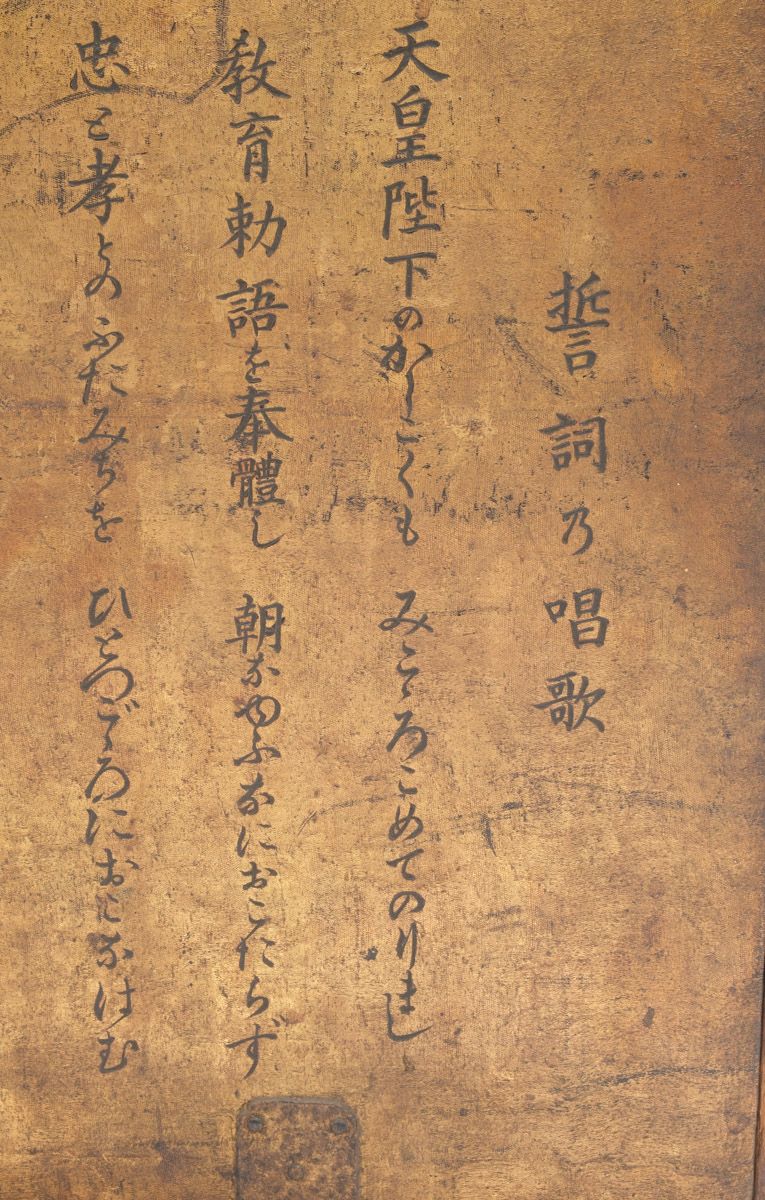 誓詞乃唱歌
天皇陛下のかしこくも みこゝろこめてのりましゝ
教育勅語を奉體し 朝なゆふなにおこたらず
忠と孝とのふたみちを ひとつごゝろにおこなはむ